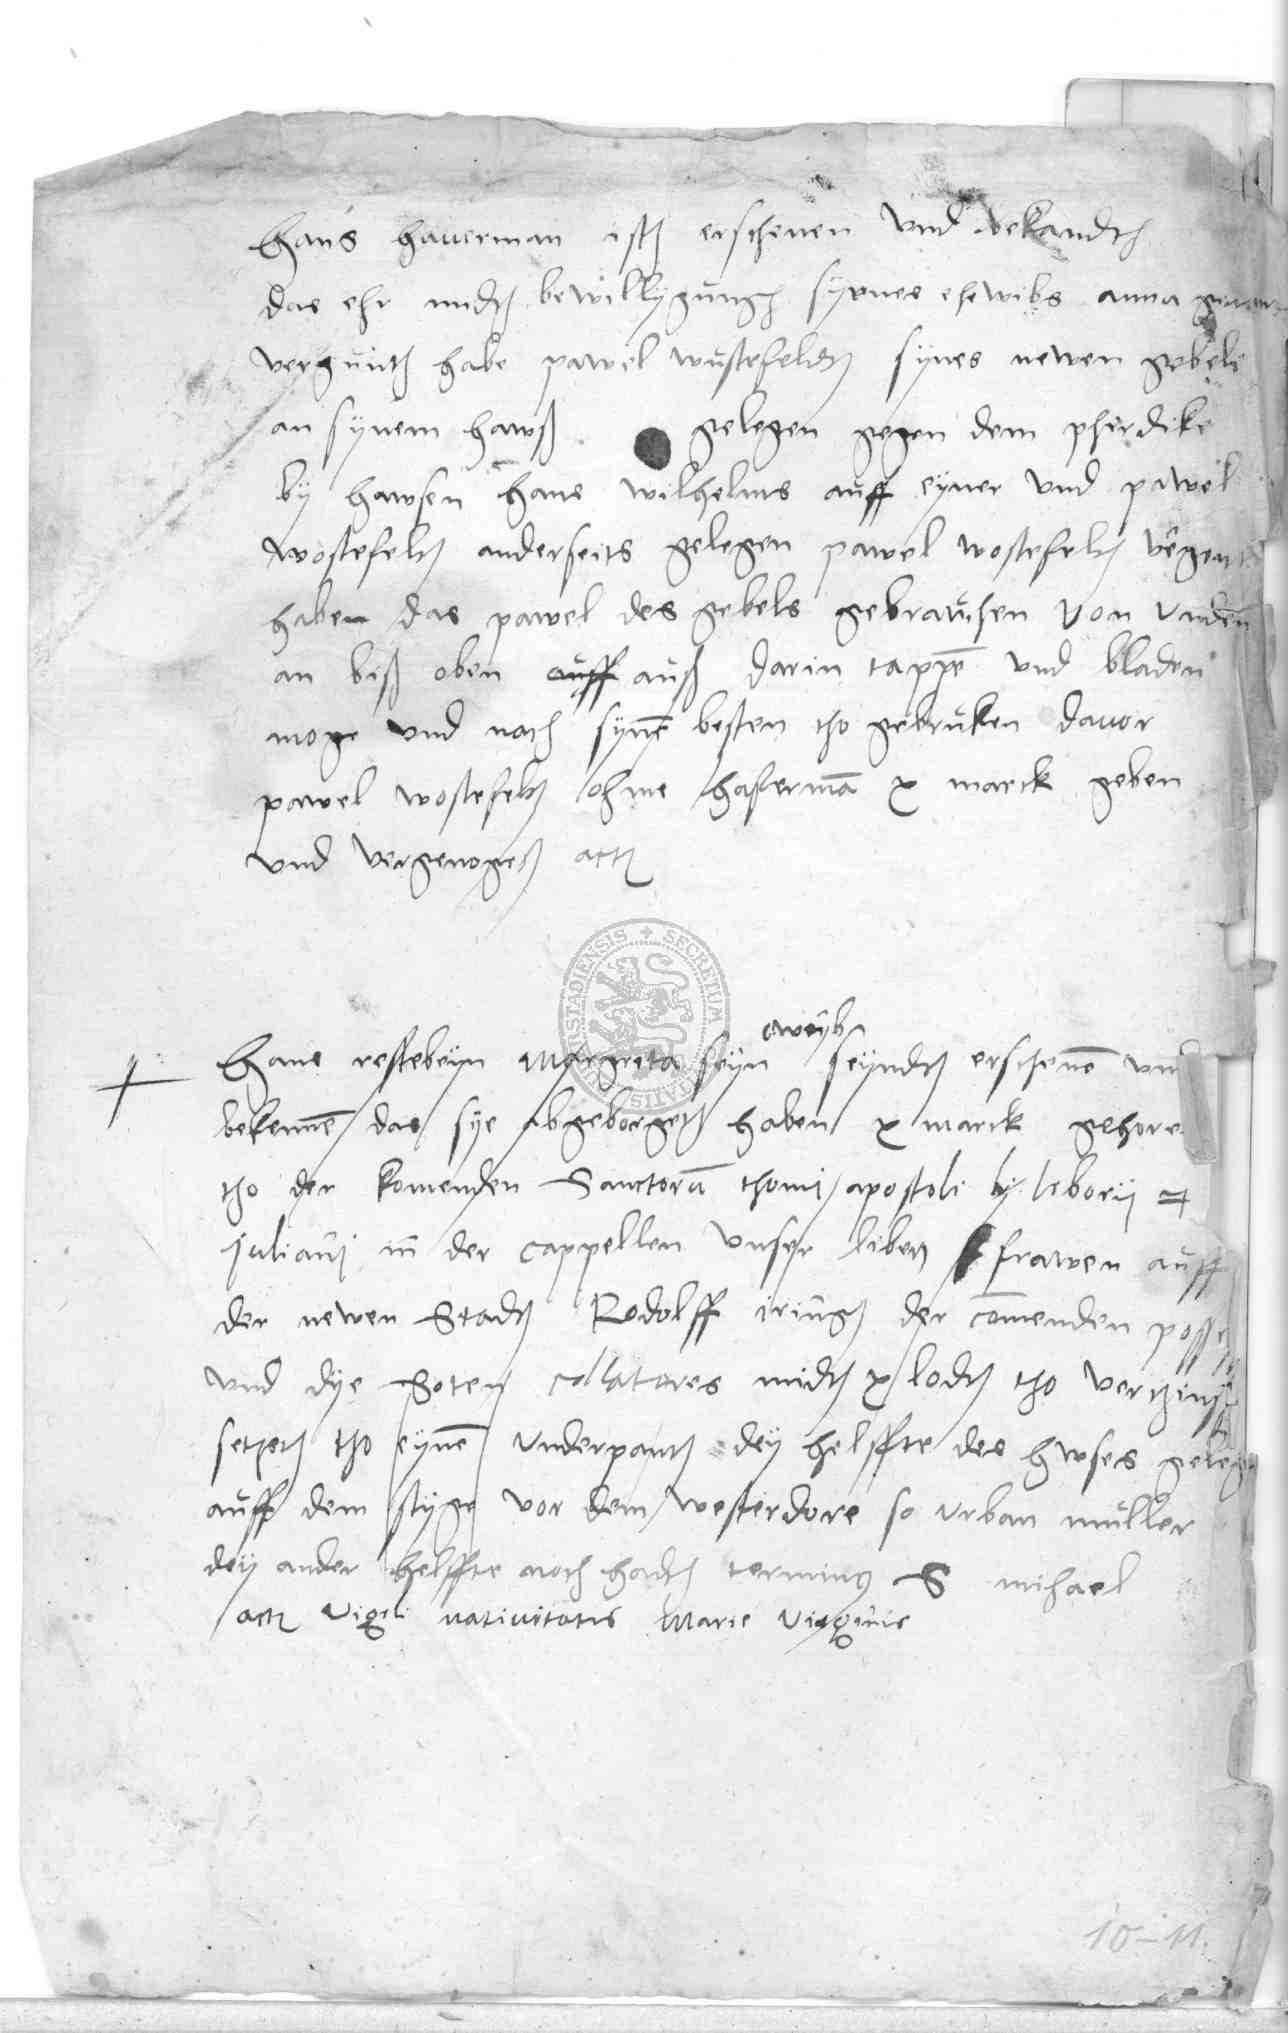 Hans hauerman isth erschenen vnd bekandth
das ehr midth bewillygungh synnes ehewibs anna
vergunth habe pawel wustefeldth synes newen gebels
an synem hawß gelegen gegen dem pherdike
by hawsen hans wilhelms auff eyner vnd pawel
wostefelth anderseits gelegen pawel wostefelth
haben das pawel des gebels gebrauchen von vnden
an biß oben auff auß darin tappē vnd bladen
moge vnd noch synē besten tho gebruken dauor
pawel wostefelth ohme hafermā x marck geben
vnd vergenogeth acth
eweyb
Hans restebeyn Margreta seyn seyndth erschenē vnd
bekennē das sye abgeborgeth haben x marck gehore
tho der komenden Sanctorū thomi apostoli by leborij
juliani in der cappellen vnser liben frawen auff
der newen Stadth Rodolff iringh der comenden posse
vnd dye Soten collatores midth x lodth tho vertzinß
setzeth tho eynē vnderpanth dey helffte des hwses geleg
auff dem styge vor dem westerdore so vrban muller
dey ander helffte noch hadth terminus S mihael
acth vigili natiuitatis Marie virginis
10-11.
SECRETUM